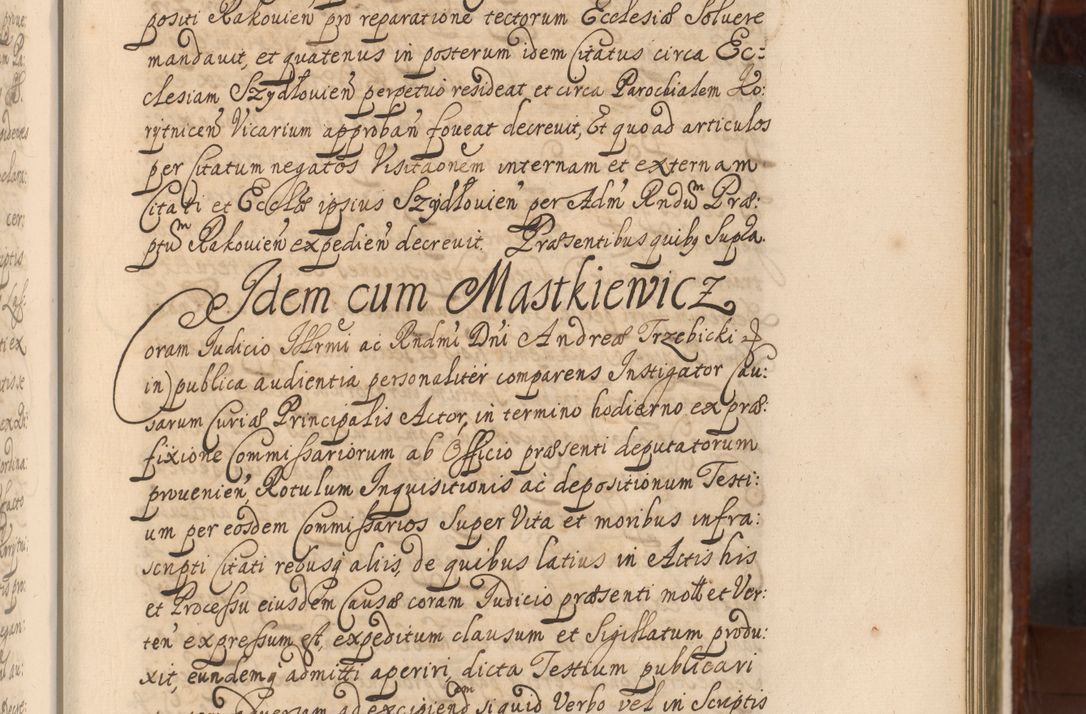 positi Rakovień pro reparatione tectorum Ecclesiæ Solvere
mandavit, et quatenus in posterum idem Citatus circa Ec:
clesiam Szydłovień perpetuo resideat et circa Parochialem Ko:
rytniceń Vicarium approbań foveat decrevit, Et quoad articulos
per Citatum negatos Visitaonem internam et externam
Citati et Ecclæ ipsius Szydłovień per Adm Rndum Præ:
ptum Rakovień expedień decrevit. Præsentibus quibq Supra.
Idem cum Mastkiewicz
Coram Judicio Illrmi ac Rndmi Dni Andreæ Trzebicki
in) publica audientia personaliter comparens Instigator Cau:
sarum Curiæ Principalis Actor, in termino hodierno ex præ:
fixione Commissariorum ab Officio præsenti deputatorum
provenień, Rotulum Inquisitionis ac depositionum Testi:
um per eosdem Commissarios Super Vita et moribus infra:
scripti Citati rebusq aliis, de quibus latius in Actis his
et Processu eiusdem Causæ coram Judicio præsenti mott et Ver:
teń expressum est, expeditum clausum et Sigillatum produ:
xit, eundemq admitti aperiri, dicta Testium publicari
adversam ad excipiend siquid Verbo vel in Scriptis